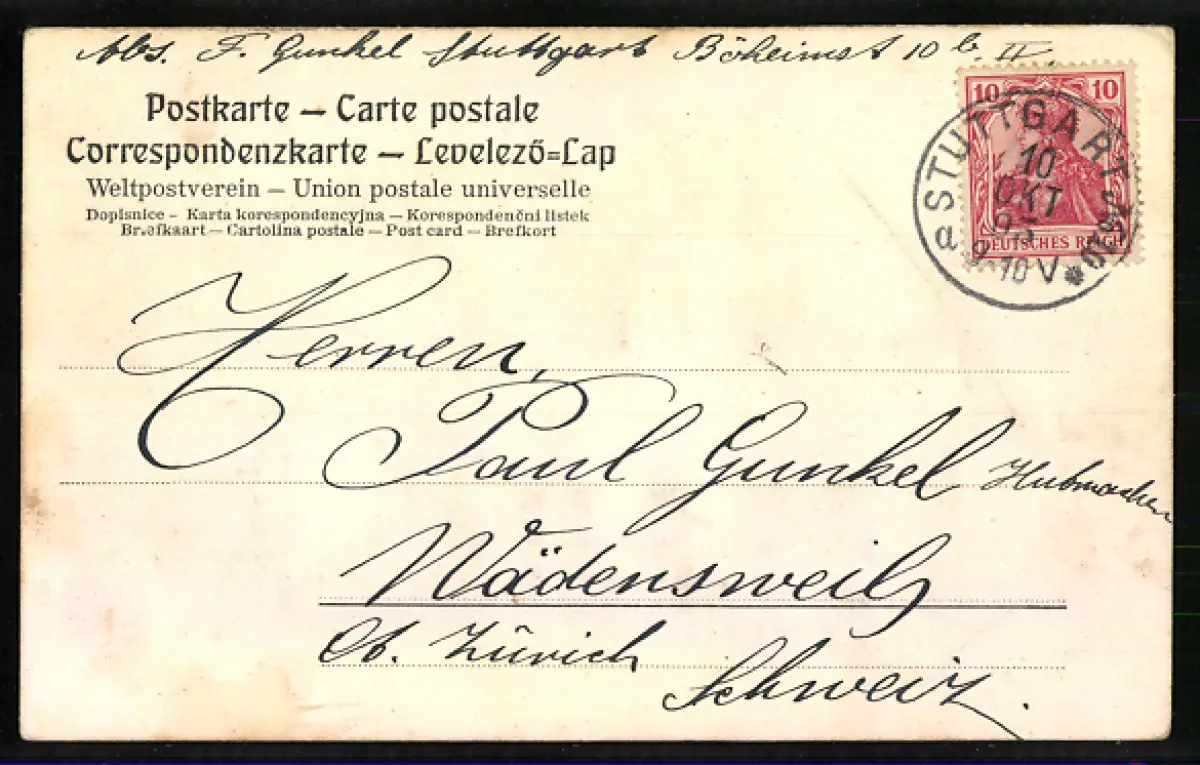 Abs. F. Gunkel Stuttgart Böheimst 10 b II.
Postkarte – Carte postale
Correspondenzkarte – Levelező=Lap
Weltpostverein – Union postale universelle
Dopisnice – Karta korespondencyjna – Korespondenčni listek
Briefkaart – Cartolina postale – Post card – Brefkort
10 10
DEUTSCHES REICH
STUTTGART
10
OKT
9-10 V
a
Herren,
Paul Gunkel Hutmacher
Wädensweil
Ct. Zürich
Schweiz.